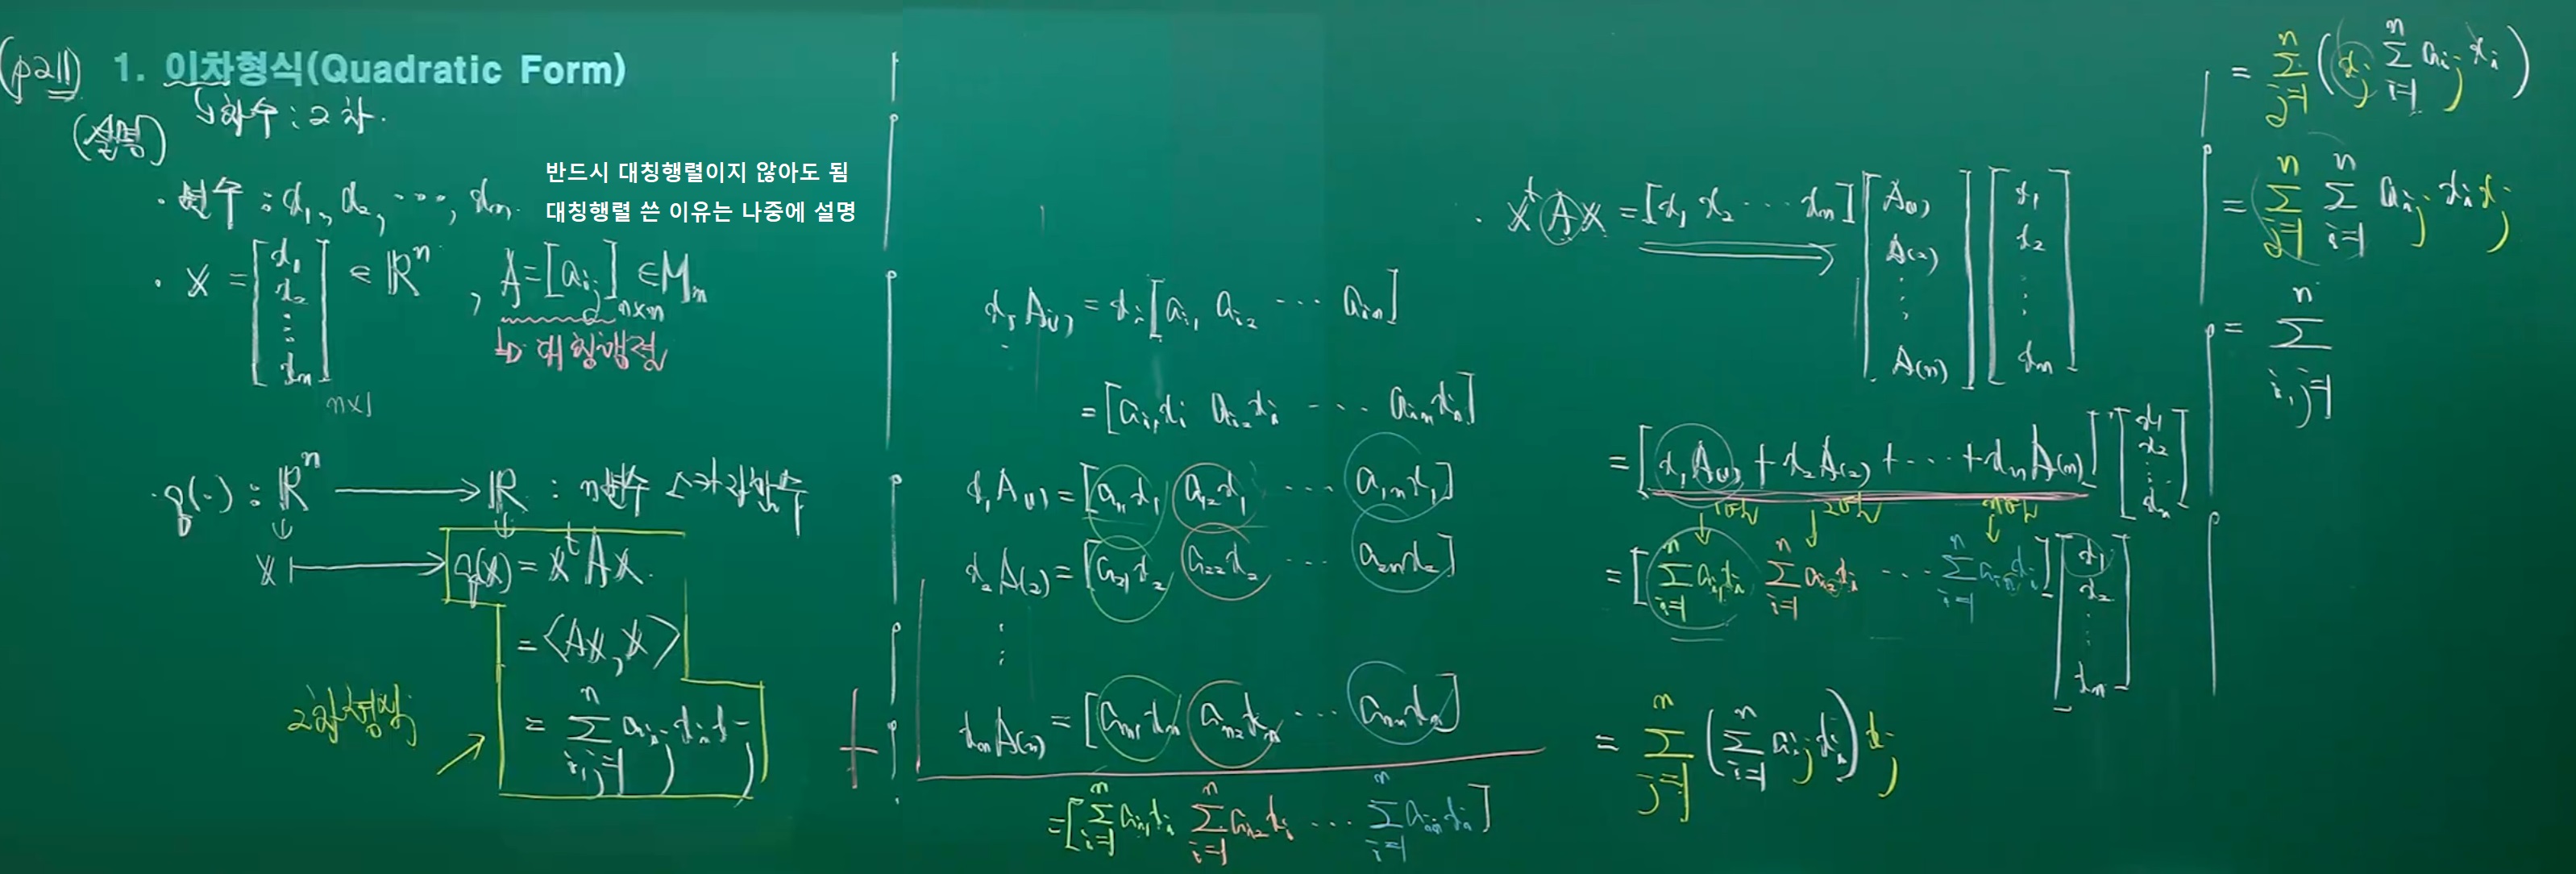 (p211) 1. 이차형식(Quadratic Form)
↳ 차수 : 2차.
(설명)
· 변수 : x₁, x₂, ⋯, xₙ.
반드시 대칭행렬이지 않아도 됨
대칭행렬 쓴 이유는 나중에 설명
· x = [x₁ x₂ ⋮ xₙ]ₙₓ₁ ∈ ℝⁿ , A = [aᵢⱼ]ₙₓₙ ∈ Mₙ
↳ 대칭행렬
· q(·) : ℝⁿ ⟶ ℝ : n변수 실함수
x ⟼ q(x) = xᵗAx.
= ⟨Ax, x⟩
= Σᵢ,ⱼ₌₁ⁿ aᵢⱼ xᵢ xⱼ
xᵢA₍ᵢ₎ = xᵢ[aᵢ₁ aᵢ₂ ⋯ aᵢₙ]
= [aᵢ₁xᵢ aᵢ₂xᵢ ⋯ aᵢₙxᵢ]
x₁A₍₁₎ = [a₁₁x₁ a₁₂x₁ ⋯ a₁ₙx₁]
x₂A₍₂₎ = [a₂₁x₂ a₂₂x₂ ⋯ a₂ₙx₂]
⋮
+ xₙA₍ₙ₎ = [aₙ₁xₙ aₙ₂xₙ ⋯ aₙₙxₙ]
= [Σᵢ₌₁ⁿ aᵢ₁xᵢ Σᵢ₌₁ⁿ aᵢ₂xᵢ ⋯ Σᵢ₌₁ⁿ aᵢₙxᵢ]
· xᵗAx = [x₁ x₂ ⋯ xₙ] [A₍₁₎ A₍₂₎ ⋮ A₍ₙ₎] [x₁ x₂ ⋮ xₙ]
= [x₁A₍₁₎ + x₂A₍₂₎ + ⋯ + xₙA₍ₙ₎] [x₁ x₂ ⋮ xₙ]
= [Σᵢ₌₁ⁿ aᵢ₁xᵢ Σᵢ₌₁ⁿ aᵢ₂xᵢ ⋯ Σᵢ₌₁ⁿ aᵢₙxᵢ] [x₁ x₂ ⋮ xₙ]
= Σⱼ₌₁ⁿ (Σᵢ₌₁ⁿ aᵢⱼxᵢ) xⱼ
= Σⱼ₌₁ⁿ (xⱼ Σᵢ₌₁ⁿ aᵢⱼ xᵢ)
= Σⱼ₌₁ⁿ Σᵢ₌₁ⁿ aᵢⱼ xᵢ xⱼ
= Σᵢ,ⱼ₌₁ⁿ